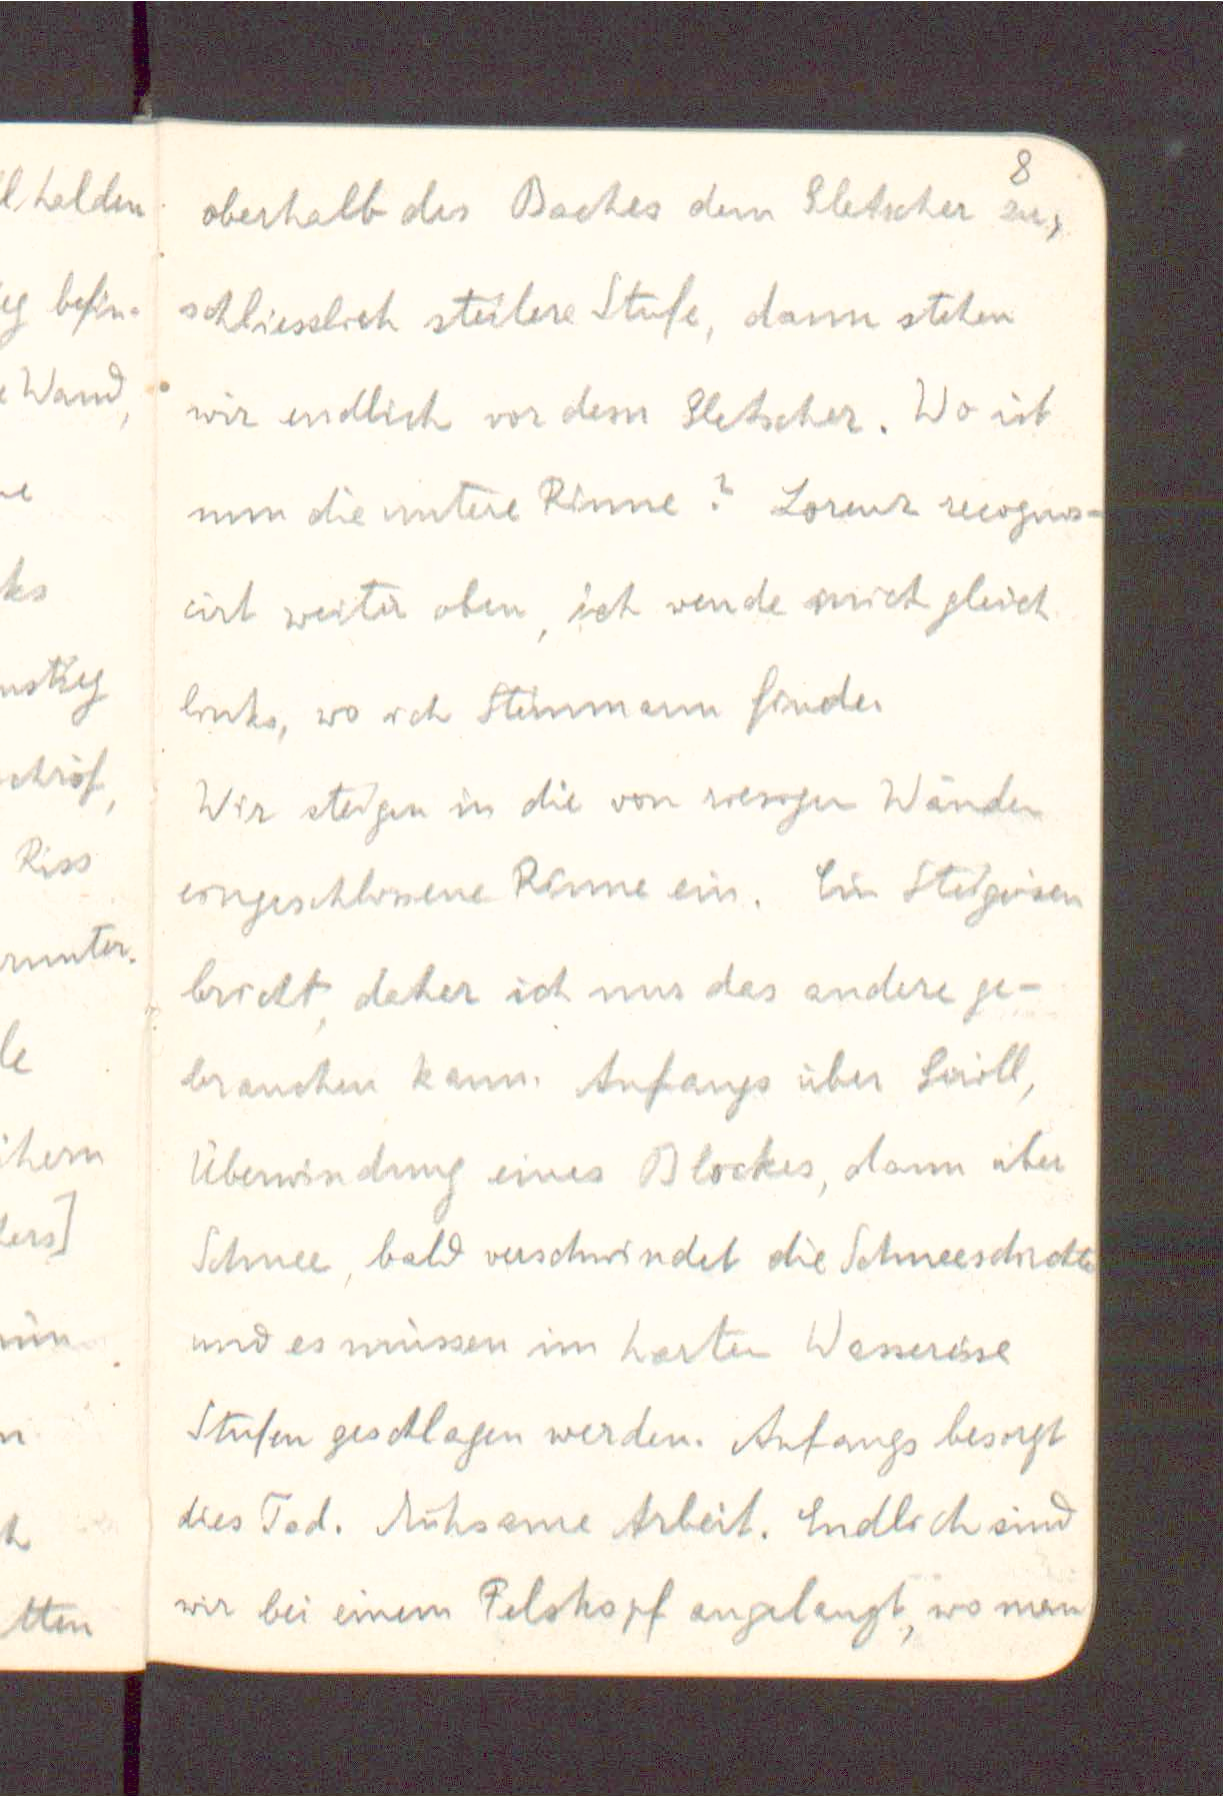 8
oberhalb des Baches dem Gletscher zu,
schliesslich steilere Stufe, dann stehen
wir endlich vor dem Gletscher. Wo ist
nun die untere Rinne? Lorenz recognos-
cirt weiter oben, ich wende mich gleich
links, wo ich Steinmann finde.
Wir steigen in die von riesigen Wänden
eingeschlossene Rinne ein. Ein Steigeisen
bricht, daher ich nur das andere ge-
brauchen kann. Anfangs über Geröll,
Überwindung eines Blockes, dann über
Schnee, bald verschwindet die Schneeschichte
und es müssen im harten Wassereise
Stufen geschlagen werden. Anfangs besorgt
dies Tod. Mühsame Arbeit. Endlich sind
wir bei einem Felskopf angelangt, wo man
halden
befin-
Wand,
Riss